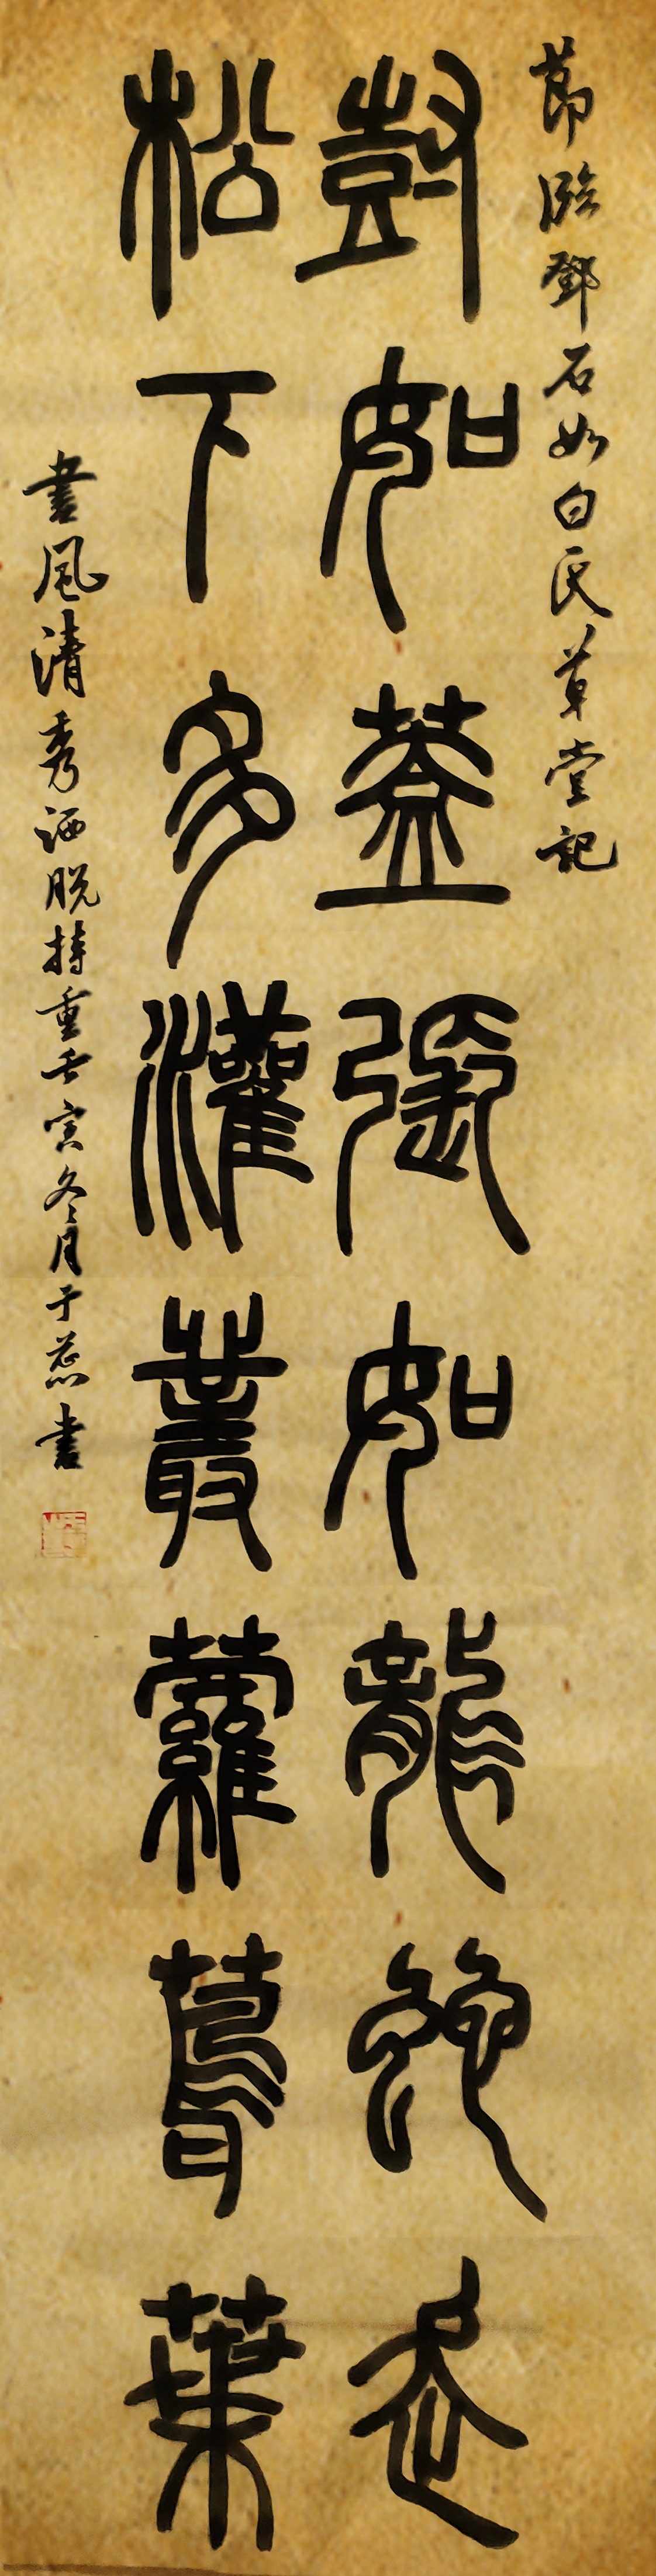 節臨鄧石如白氏草堂記
尌如蓋張如龍蛇走
松下多灌叢蘿蔦葉
書風清秀洒脫持重壬寅冬月于書